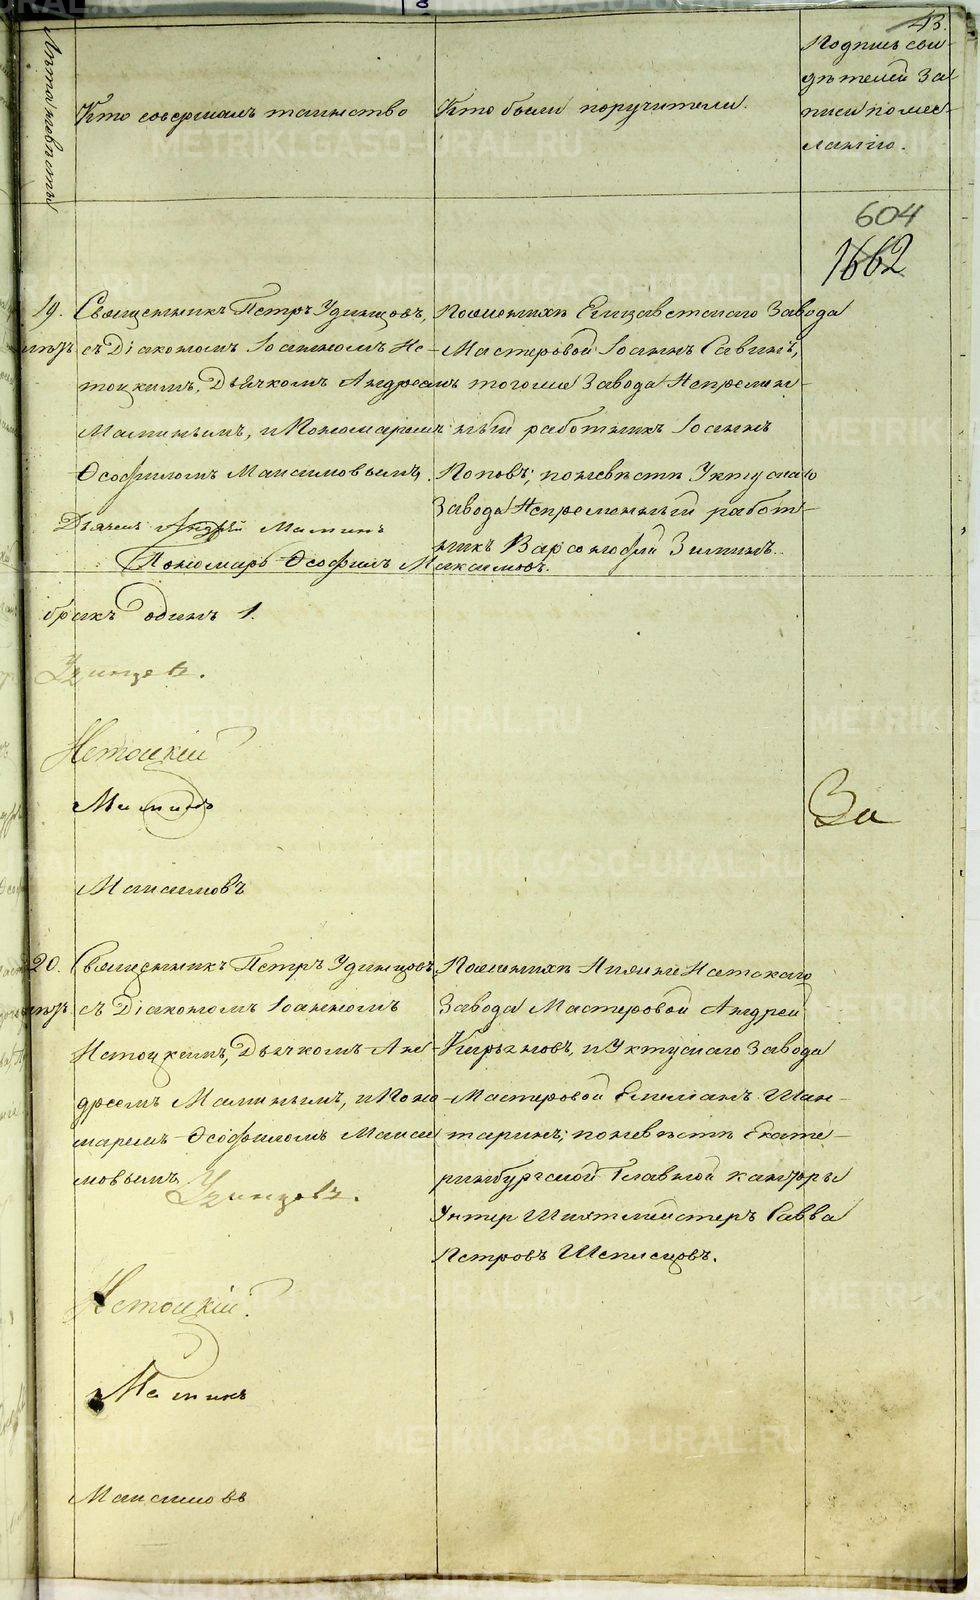 43.
Лѣта невѣсты
Кто совершалъ таинство
Кто были поручители.
Подпись сви-
дѣтелей за-
писи по же-
ланію.
604
1662
19.
Священникъ Петръ Удинцовъ,
съ Діакономъ Іоанномъ Не-
тоцкимъ, Дьячкомъ Андреемъ
Маминымъ, и Пономаремъ
Ѳеофиломъ Максимовымъ.
Дьячекъ Андрей Маминъ
Пономарь Ѳеофилъ Максимовъ.
По женихѣ Елизаветскаго Завода
Мастеровой Іоаннъ Савинъ,
тогоже Завода Непремен-
ный работникъ Іоаннъ
Поповъ; по невѣстѣ Уктускаго
Завода Непременный работ-
никъ Варсонофій Зиминъ.
бракъ одинъ 1.
Удинцовъ.
Нетоцкій
Маминъ
Максимовъ
За
20.
Священникъ Петръ Удинцовъ
съ Діакономъ Іоанномъ
Нетоцкимъ, Дьячкомъ Ан-
дреемъ Маминымъ, и Поно-
маремъ Ѳеофиломъ Макси-
мовымъ
Удинцовъ.
По женихѣ Нижне Исетскаго
Завода Мастеровой Андрей
Кирьяновъ, и Уктускаго Завода
Мастеровой Епиманъ Шан-
таринъ; по невѣстѣ Екате-
ринбургской Главной канторы
Унтер Шихтмейстеръ Савва
Петровъ Шеписцовъ.
Нетоцкій
Маминъ
Максимовъ
METRIKI.GASO-URAL.RU